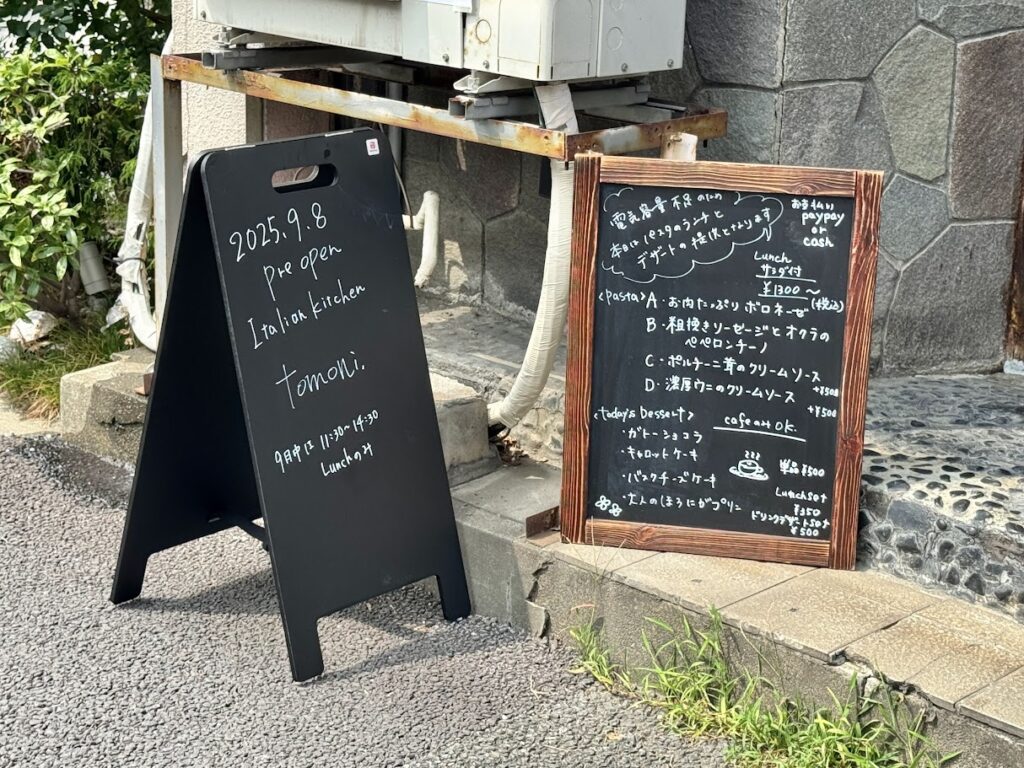 2025.9.8
Pre open
Italian kitchen
tomoni.
9月中は 11:30~14:30
Lunchのみ
電気容量不足のため
本日はパスタのランチと
デザートの提供となります
お支払い
paypay
or
cash
Lunch
サラダ付
¥1300~
(税込)
<Pasta> A・お肉たっぷりボロネーゼ
B・粗挽きソーセージとオクラの
ペペロンチーノ
C・ポルチーニ茸のクリームソース
+¥500
D・濃厚ウニのクリームソース
+¥500
<today's Dessert>
cafeのみOK.
・ガトーショコラ
・キャロットケーキ
・バスクチーズケーキ
・大人のほろにがプリン
単品¥500
Lunchset
¥350
ドリンクデザートset
¥500